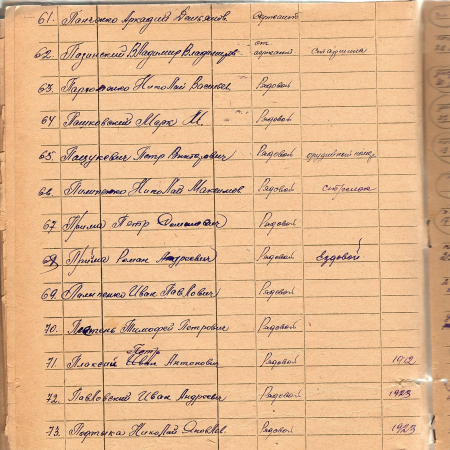 61. Панченко Аркадий Демьянов. сержант
62. Пазинский Владимир Владимиров. от. сержант старшина
63. Пархоменко Николай Васильев. Рядовой
64 Пашковский Марк М. Рядовой
65. Пацукевич Петр Викторович Рядовой орудийный ном.
66. Пилипенко Николай Максимов Рядовой
67. Прима Петр Рядовой
68. Прийма Роман Андреевич Рядовой Ездовой
69. Иван Павлович Рядовой
70. Тимофей Петрович Рядовой
71. Плаксий Петр Антонович Рядовой 1912
72. Павловский Иван Андреевич Рядовой 1923
73. Подтыка Николай Яковлев. Рядовой 1923